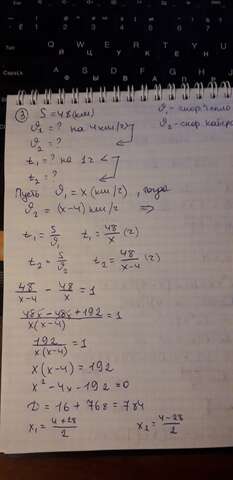 ③ S = 48 (км)
ϑ₁ = ? на 4 км/ч
ϑ₂ = ?
ϑ₁ - скор.
ϑ₂ - скор.
t₁ = ? на 1 ч <
t₂ = ?
Пусть ϑ₁ = x (км/ч), тогда
ϑ₂ = (x-4) км/ч ⇒
t₁ = S/ϑ₁ t₁ = 48/x (ч)
t₂ = S/ϑ₂ t₂ = 48/(x-4) (ч)
48/(x-4) - 48/x = 1
(48x - 48x + 192)/(x(x-4)) = 1
192/(x(x-4)) = 1
x(x-4) = 192
x² - 4x - 192 = 0
D = 16 + 768 = 784
x₁ = (4+28)/2 x₂ = (4-28)/2